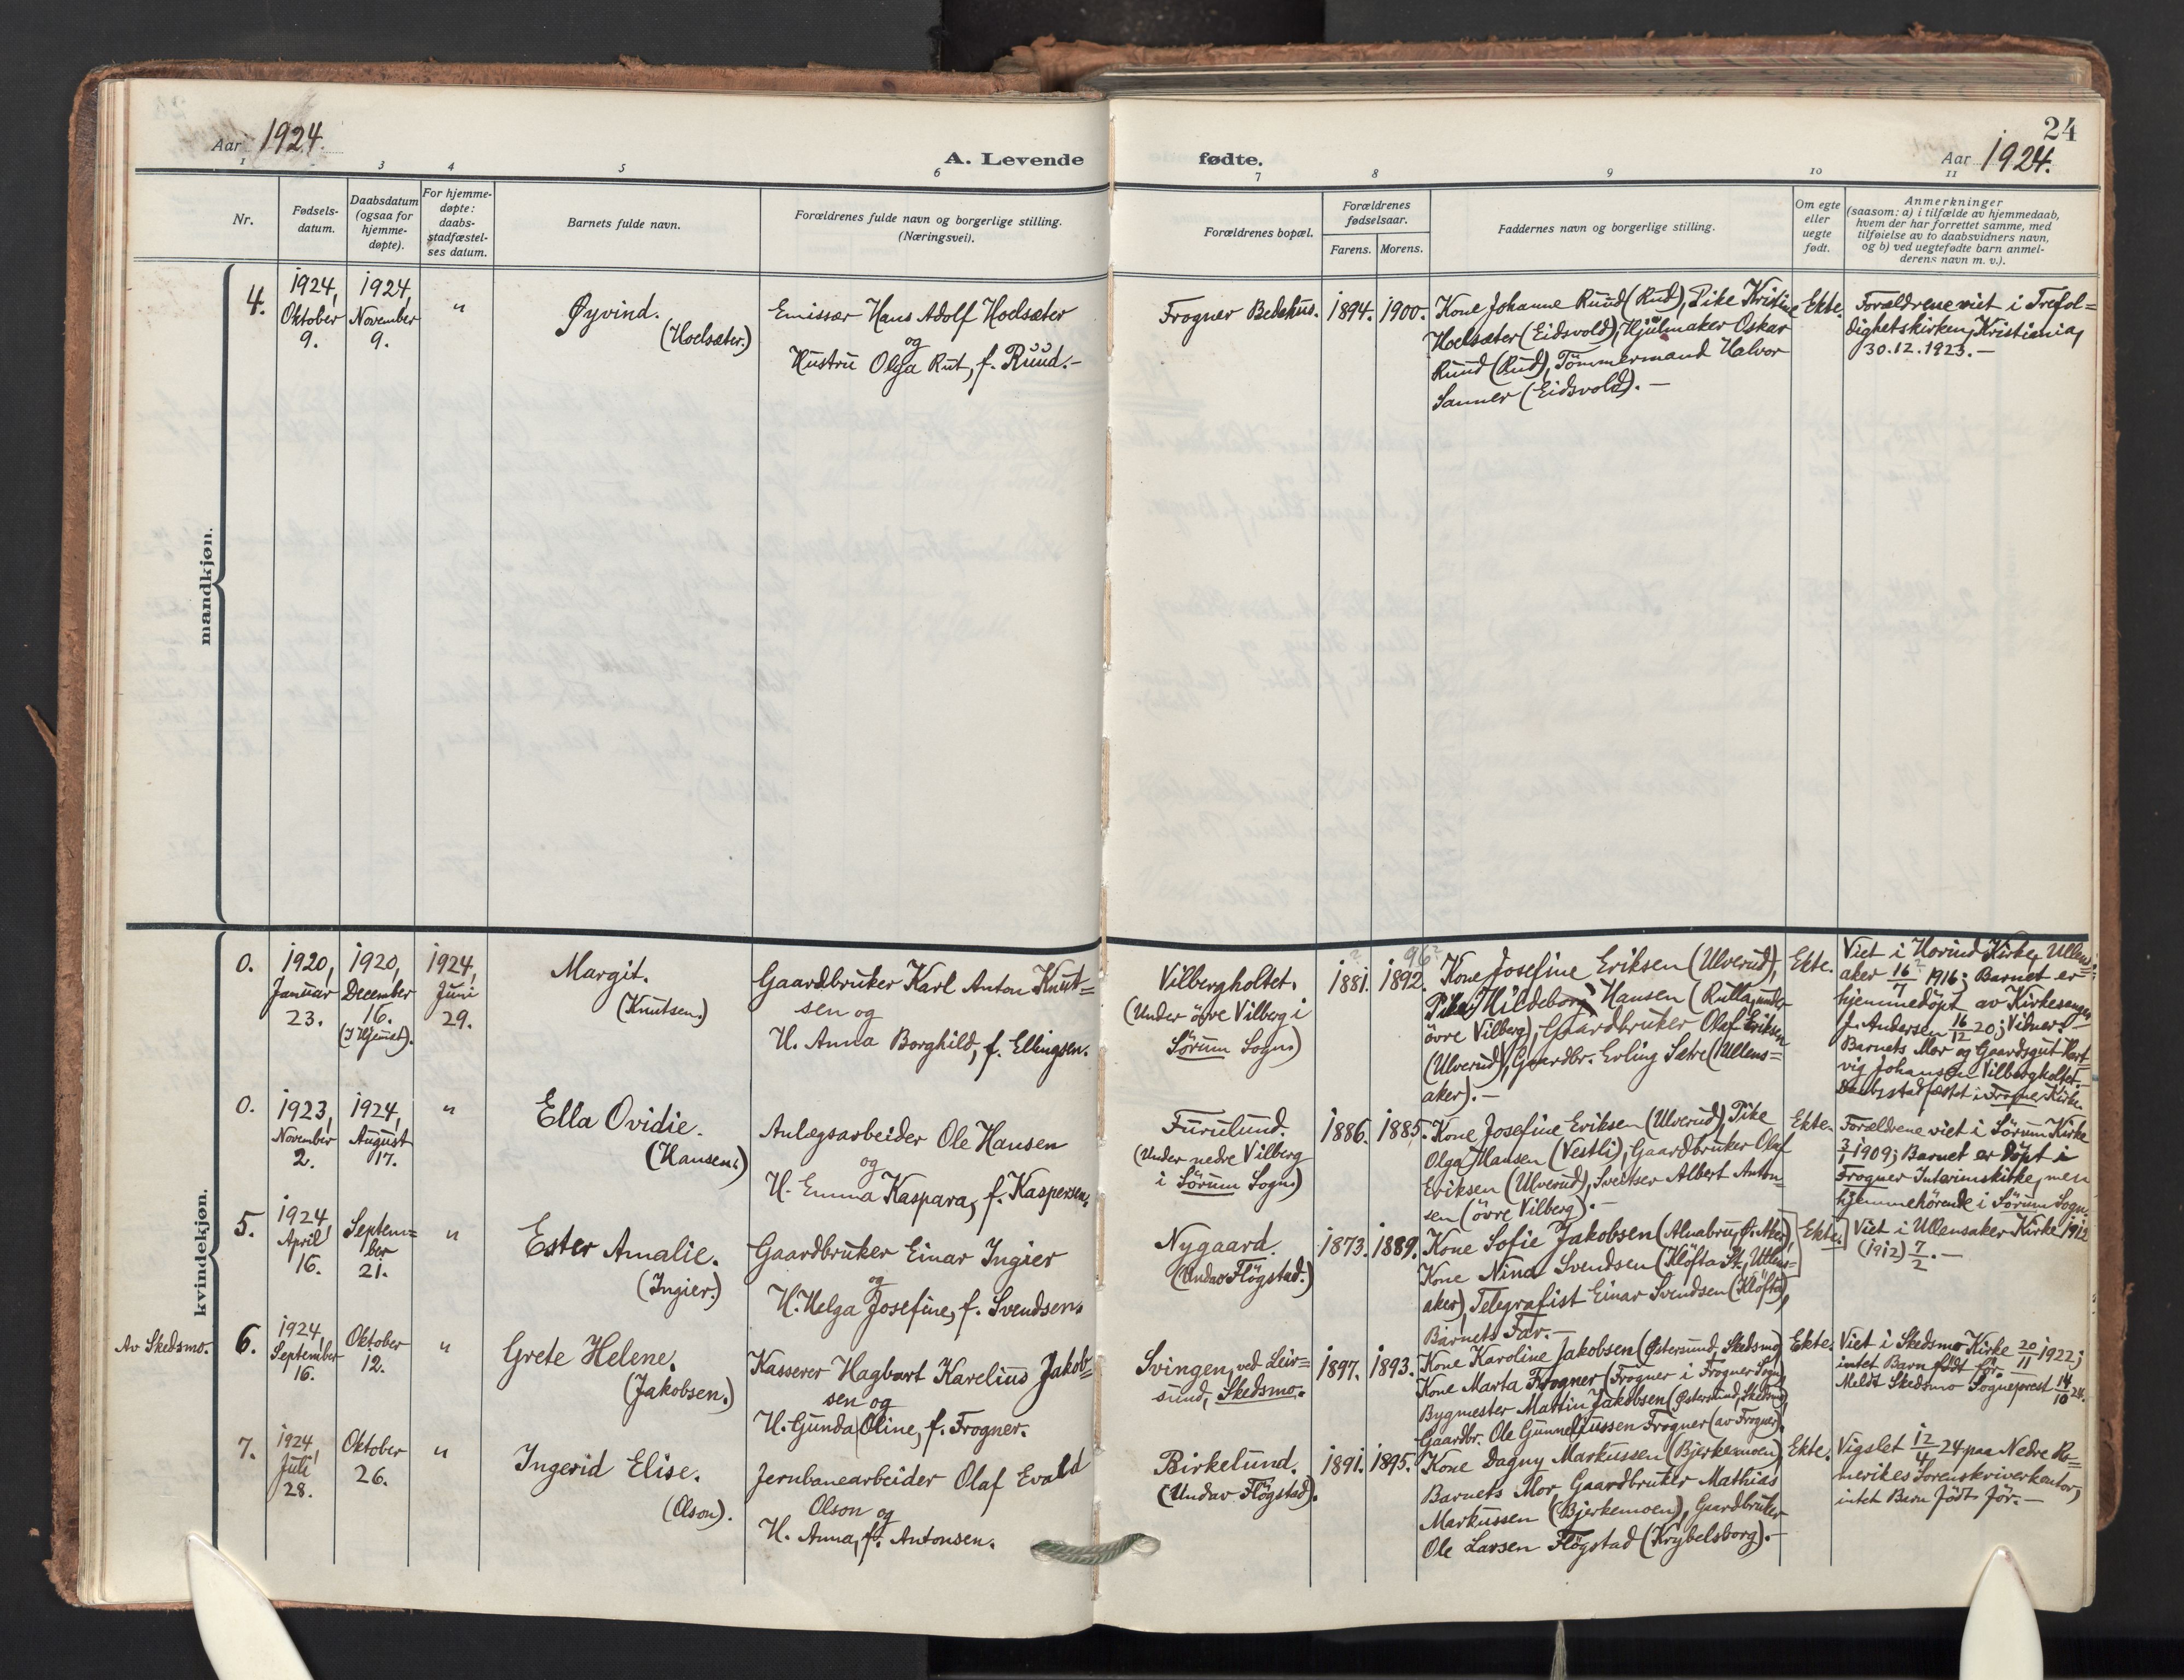 Aar 1924.
A. Levende
fødte.
24
Aar 1924.
1 3 4 5 6
7 8 9 10 11
Nr.
Fødsels-
datum.
Daabsdatum
(ogsaa for
hjemme-
døpte).
For hjemme-
døpte:
daabs-
stadfæstel-
ses datum.
Barnets fulde navn.
Forældrenes fulde navn og borgerlige stilling.
(Næringsvei).
Forældrenes bopæl.
Forældrenes
fødselsaar.
Farens. Morens.
Faddernes navn og borgerlige stilling.
Om egte
eller
uegte
født.
Anmerkninger
(saasom: a) i tilfælde av hjemmedaab,
hvem der har forrettet samme, med
tilføielse av to daabsvidners navn,
og b) ved uegtefødte barn anmel-
derens navn m. v.).
mandkjøn.
4.
1924,
Oktober
9.
1924,
November
9.
"
Øyvind.
(Hoelsæter.)
Emissær Hans Adolf Hoelsæter
og
Hustru Olga Rut, f. Ruud.-
Frogner Bedehus.
1894.
1900.
Kone Johanne Ruud (Rud), Pike Kristine
Hoelsæter (Eidsvold), Hjulmaker Oskar
Ruud (Rud), Tömmermand Halvor
Sanner (Eidsvold).-
Ekte.
Forældrene viet i Trefol=
dighetskirken, Kristiania,
30.12.1923.-
kvindekjøn.
0.
1920,
Januar
23.
1920,
December
16.
(I Hjemet).
1924,
Juni
29.
Margit.
(Knutsen.)
Gaardbruker Karl Anton Knut=
sen og
H. Anna Borghild, f. Ellingsen.
Vilbergholtet.
(Under övre Vilberg i
Sörum Sogn)
?
1881.
96?
1892.
Kone Josefine Eriksen (Ulverud),
Pike Hildeborg Hansen (Rulla, under
övre Vilberg), Gaardbruker Olaf Eriksen
(Ulverud), Gaardbr. Erling Sætre (Ullens=
aker).-
Ekte.
Viet i Hovind Kirke, Ullens=
aker 16/7 ? 1916; Barnet er
hjemmedöpt av Kirkesanger
J. Andersen 16/12 20; Vidner:
Barnets Mor og Gaardsgut Hart
vig Johansen Vilbergholtet.-
Daabs stadfæstet i Frogner Kirke.
0.
1923,
November
2.
1924,
August
17.
"
Ella Ovidie.
(Hansen.)
Anlægsarbeider Ole Hansen
og
H. Emma Kaspara, f. Kaspersen.
Furulund.
(Under nedre Vilberg
i Sörum Sogn)
1886.
1885.
Kone Josefine Eriksen (Ulverud), Pike
Olga Hansen (Vestli), Gaardbruker Olaf
Eriksen (Ulverud), Sveitser Albert Anton=
sen (övre Vilberg).-
Ekte.
Forældrene viet i Sörum Kirke
3/1 1909; Barnet er döpt i
Frogner Interimskirke, men
hjemmehörende i Sörum Sogn.
5.
1924,
April
16.
Septem=
ber
21.
"
Ester Amalie.
(Ingier.)
Gaardbruker Einar Ingier
og
H. Helga Josefine, f. Svendsen.
Nygaard.
(Undav Flögstad.)
1873.
1889.
Kone Sofie Jakobsen (Alnabru, Ö. Aker),
Kone Nina Svendsen (Klöfta St., Ullens=
aker), Telegrafist Einar Svendsen (Klöfta),
Barnets Far.-
Ekte.
Viet i Ullensaker Kirke 1912
(1912) 7/2.-
Av Skedsmo.
6.
1924,
September
16.
Oktober
12.
"
Grete Helene.
(Jakobsen.)
Kasserer Hagbart Karelius Jakob=
sen og
H. Gunda Oline, f. Frogner.
Svingen, ved Leir=
sund, Skedsmo.
1897.
1893.
Kone Karoline Jakobsen (Östersund, Skedsmo)
Kone Marta Frogner (Frogner i Frogner Sogn)
Bygmester Martin Jakobsen (Östersund, Skedsmo)
Gaardbr. Ole Gunneljussen Frogner (av Frogner).
Ekte.
Viet i Skedsmo Kirke 20/11 1922;
intet Barn födt för.-
Meldt Skedsmo Sogneprest 14/10 24.
7.
1924,
Juli
28.
Oktober
26.
"
Ingerid Elise.
(Olson).
Jernbanearbeider Olaf Evald
Olson og
H. Anna, f. Antonsen.
Birkelund.
(Undav Flögstad).
1891.
1895.
Kone Dagny Markussen (Bjerkemoen)
Barnets Mor, Gaardbruker Mathias
Markussen (Bjerkemoen), Gaardbruker
Ole Larsen Flögstad (Krybelsborg).-
Ekte.
Vigslet 12/4 24 paa Nedre Ro=
merikes Sorenskriverkontor,
intet Barn födt för.-